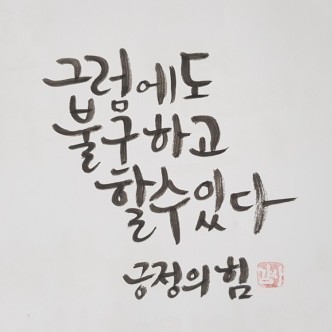 그럼에도
불구하고
할수있다
긍정의 힘
감사